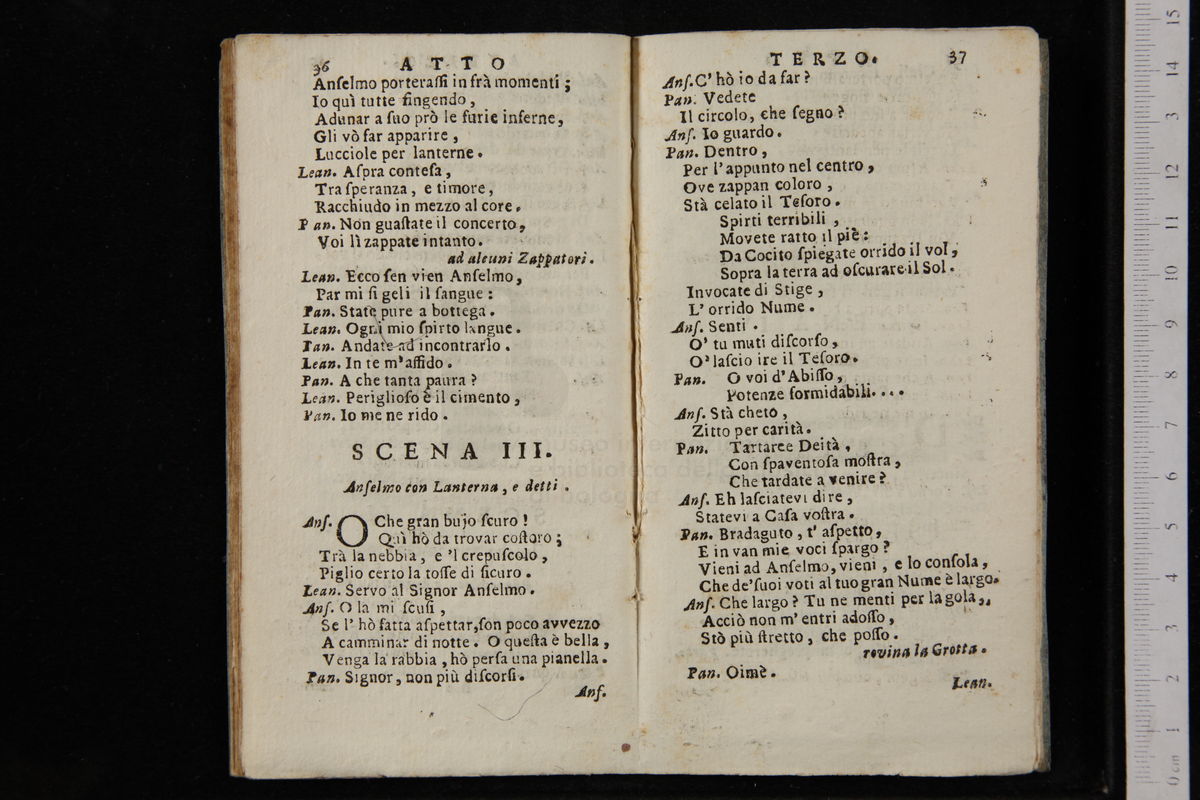 36 ATTO
Anſelmo porteraſſi in frà momenti ;
Io quì tutte fingendo ,
Adunar a ſuo prò le furie inferne,
Gli vò far apparire ,
Lucciole per lanterne .
Lean. Aſpra conteſa ,
Tra ſperanza , e timore,
Racchiudo in mezzo al core.
Pan. Non guaſtate il concerto,
Voi lì zappate intanto.
ad alcuni Zappatori.
Lean. Ecco ſen vien Anſelmo,
Par mi ſi geli il ſangue :
Pan. State pure a bottega .
Lean. Ogni mio ſpirto langue.
Pan. Andate ad incontrarlo .
Lean. In te m'affido.
Pan. A che tanta paura ?
Lean. Perigliofo è il cimento,
Pan. Io me ne rido .
SCENA III.
Anſelmo con Lanterna, e detti .
Anſ. O Che gran bujo ſcuro !
Quì hò da trovar coſtoro ;
Trà la nebbia , e 'l crepuſcolo ,
Piglio certo la toſſe di ſicuro .
Lean. Servo al Signor Anſelmo.
Anſ. O la mi ſcuſi ,
Se l' hò fatta aſpettar,ſon poco avvezzo
A camminar di notte. O queſta è bella ,
Venga la rabbia , hò perſa una pianella .
Pan. Signor, non più diſcorſi.
Anſ.
TERZO. 37
Anſ. C' hò io da far ?
Pan. Vedete
Il circolo, che ſegno ?
Anſ. Io guardo.
Pan. Dentro ,
Per l'appunto nel centro ,
Ove zappan coloro ,
Stà celato il Teſoro .
Spirti terribili ,
Movete ratto il piè :
Da Cocito ſpiegate orrido il vol,
Sopra la terra ad oſcurare il Sol .
Invocate di Stige ,
L' orrido Nume .
Anſ. Senti .
O' tu muti diſcorſo ,
O' laſcio ire il Teſoro.
Pan. O voi d'Abiſſo,
Potenze formidabili....
Anſ. Stà cheto ,
Zitto per carità.
Pan. Tartaree Deità ,
Con ſpaventoſa moſtra ,
Che tardate a venire ?
Anſ. Eh laſciatevi dire ,
Statevi a Caſa voſtra .
Pan. Bradaguto , t' aſpetto,
E in van mie voci ſpargo ?
Vieni ad Anſelmo, vieni , e lo conſola ,
Che de'ſuoi voti al tuo gran Nume è largo.
Anſ. Che largo ? Tu ne menti per la gola,
Acciò non m' entri adoſſo ,
Stò più ſtretto , che poſſo .
rovina la Grotta .
Pan. Oimè .
Lean.